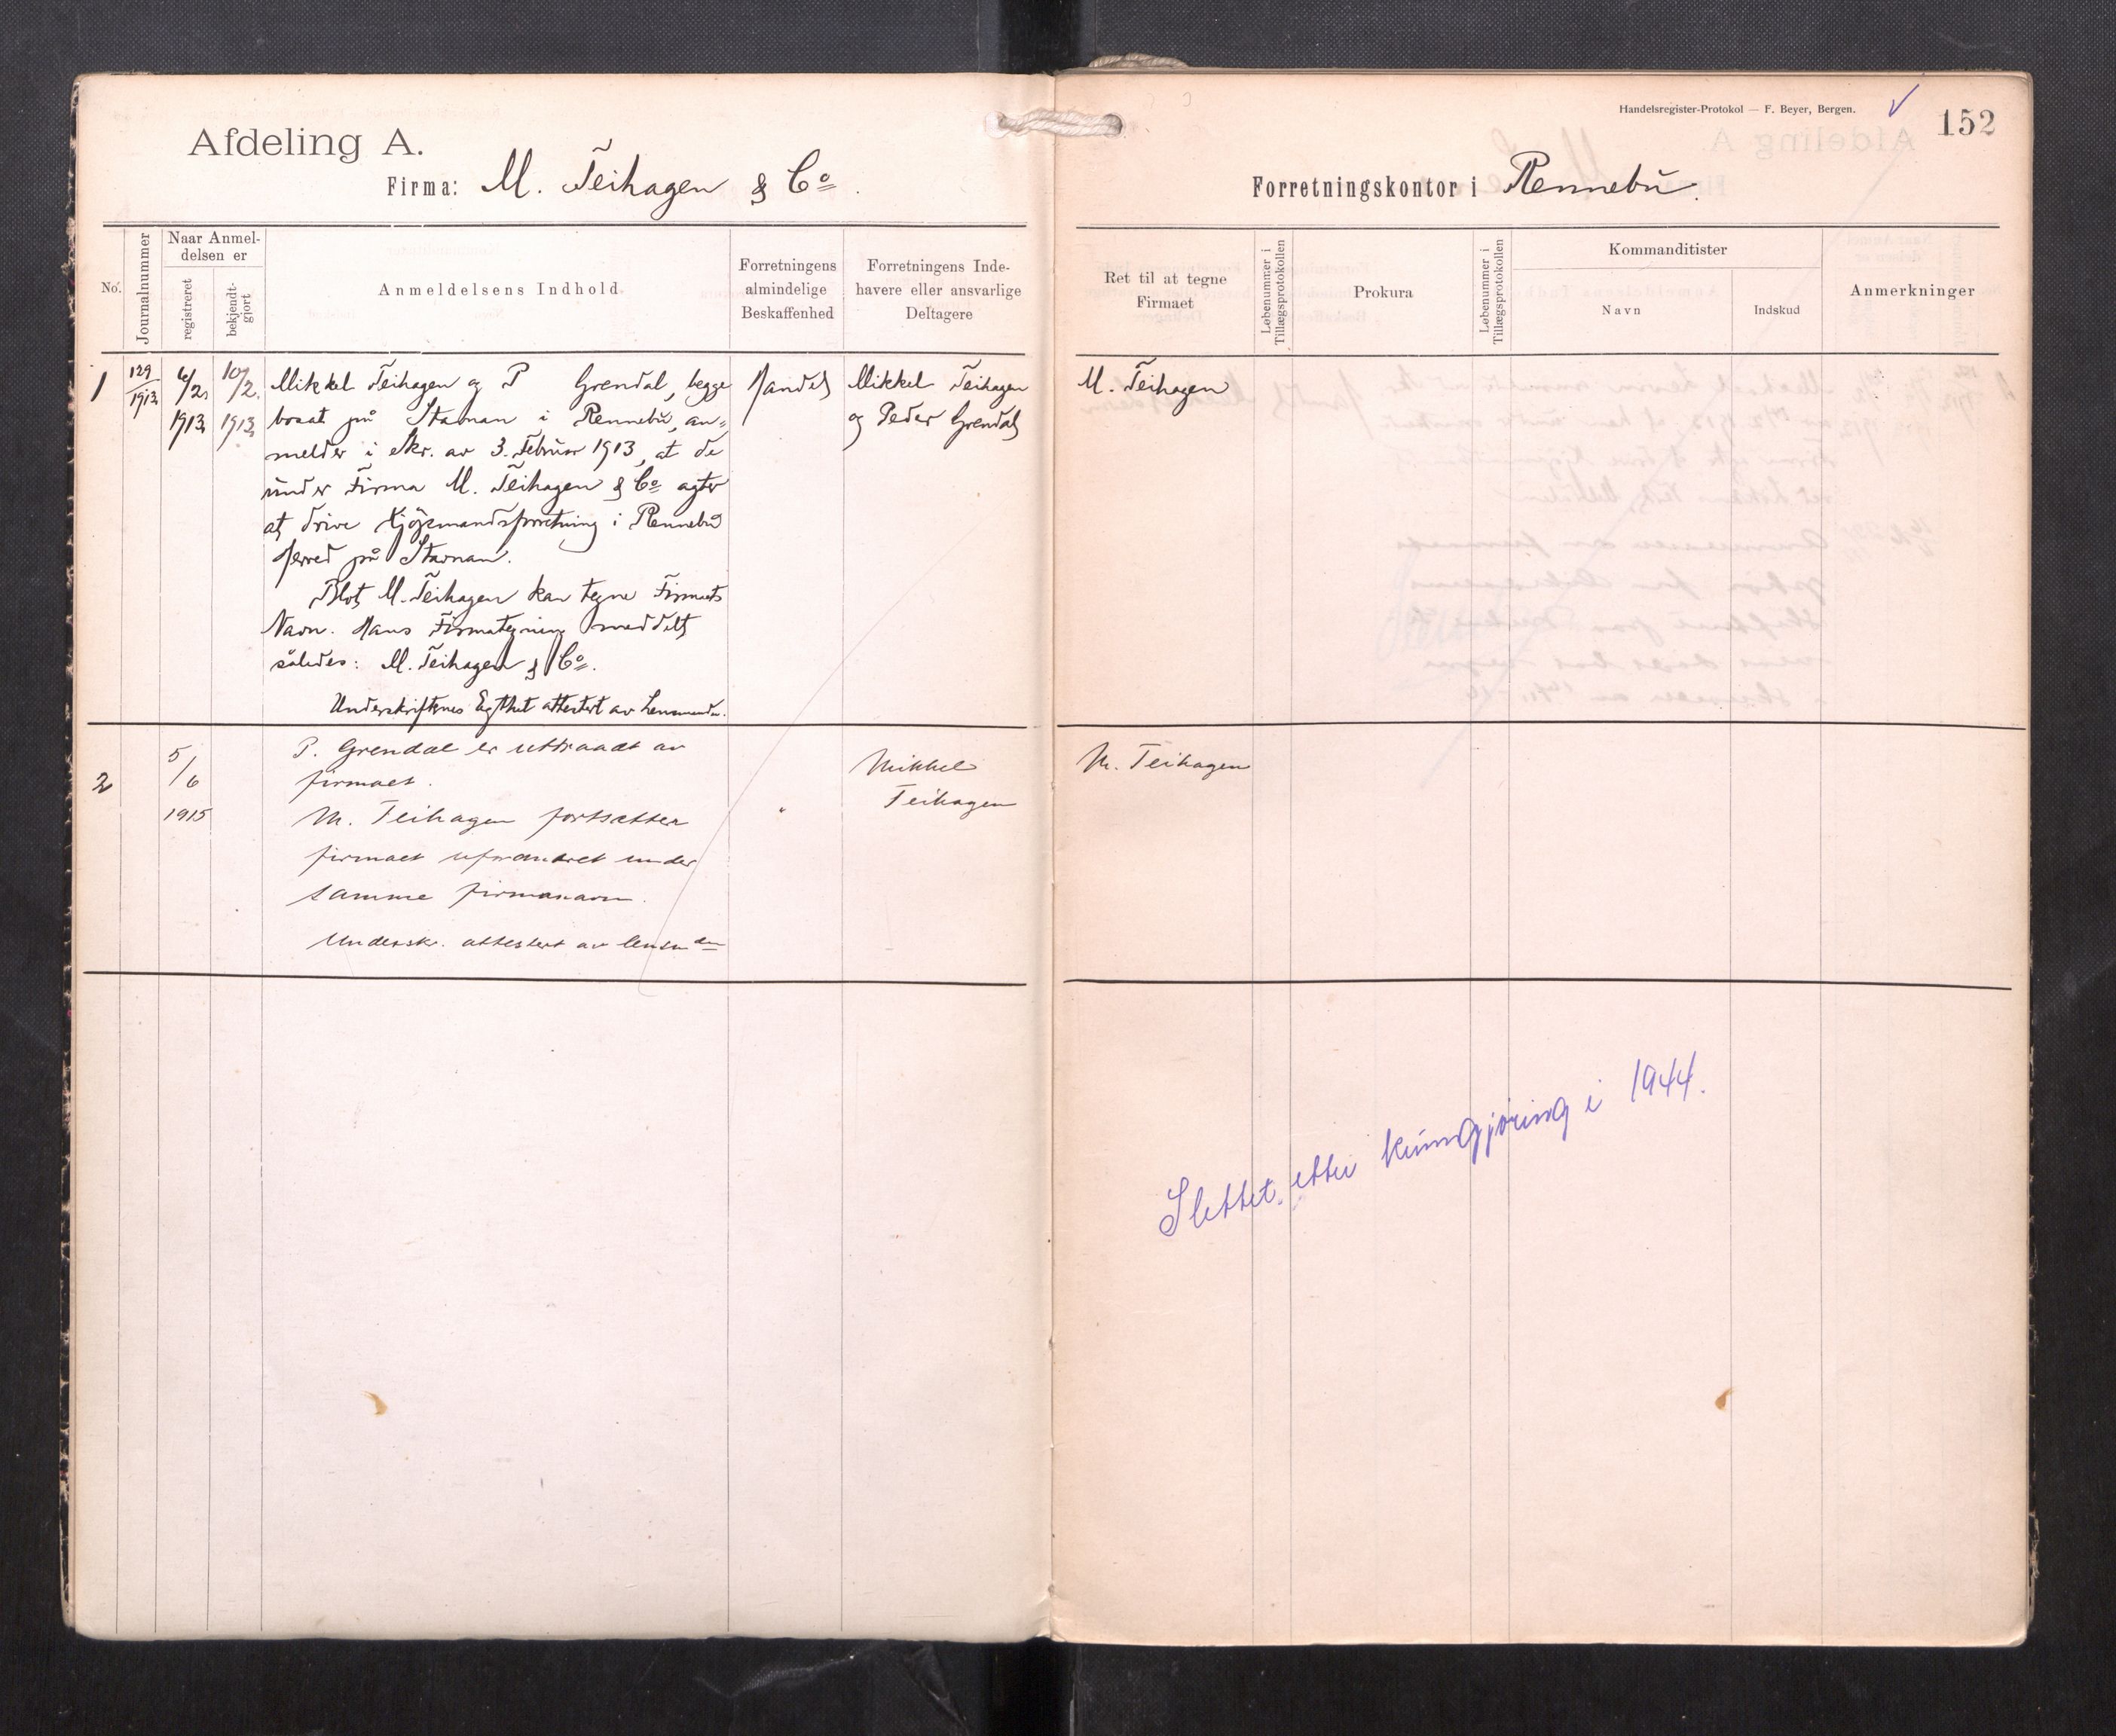 Handelsregister-Protokol — F. Beyer, Bergen.
152
Afdeling A.
Firma: M. Teihagen & Co.
Forretningskontor i Rennebu.
No.
Journalnummer
Naar Anmel-
delsen er
registreret
bekjendt-
gjort
Anmeldelsens Indhold
Forretningens
almindelige
Beskaffenhed
Forretningens Inde-
havere eller ansvarlige
Deltagere
Ret til at tegne
Firmaet
Løbenummer i
Tillægsprotokollen
Prokura
Løbenummer i
Tillægsprotokollen
Kommanditister
Navn
Indskud
Anmerkninger
1
129
1913
6/2
1913
10/2
1913
Mikkel Teihagen og P Grendal, begge
bosat på Stavnan i Rennebu, an-
melder i Skr. av 3. Februar 1913, at de
under Firma M. Teihagen & Co agter
at drive Kjøpmandsforretning i Rennebu
Herred på Stavnan.
Blot M. Teihagen kan tegne Firmaets
Navn. Hans Firmategning meddelt
således: M. Teihagen & Co.
Underskrifternes Egthet attestert av Lensmanden.
Handel
Mikkel Teihagen
og Peder Grendal
M. Teihagen
2
5/6
1915
P. Grendal er uttraadt av
firmaet.
M. Teihagen fortsætter
firmaet uforandret under
samme firmanavn.
Undersk. attestert av lensmden
"
Mikkel
Teihagen
M. Teihagen
Slettet etter kunngjøring i 1944.